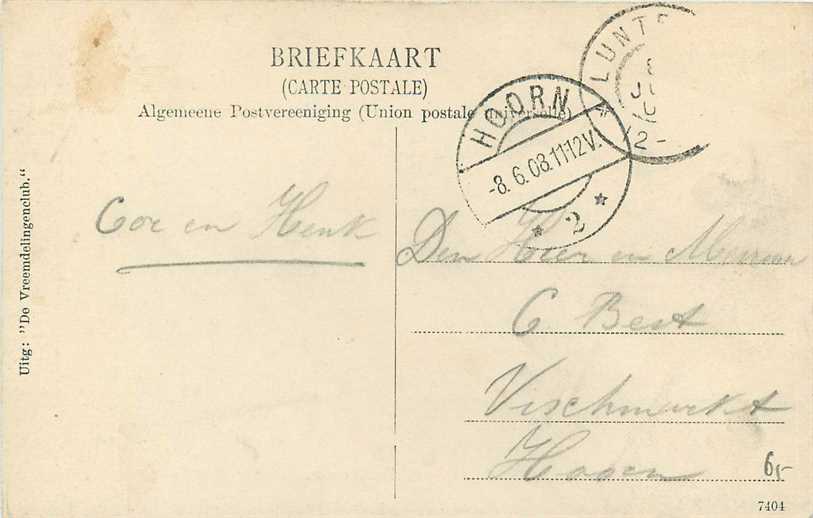 BRIEFKAART
(CARTE POSTALE)
Algemeene Postvereeniging (Union postale universelle)
LUNT
12-
HOORN
-8.6.08.11-12V.
* 2 *
Uitg: "De Vreemdelingenclub."
Coe en Henk
Den Heer en Mevrouw
C. Best
Vischmarkt
Hoorn
6,-
7404